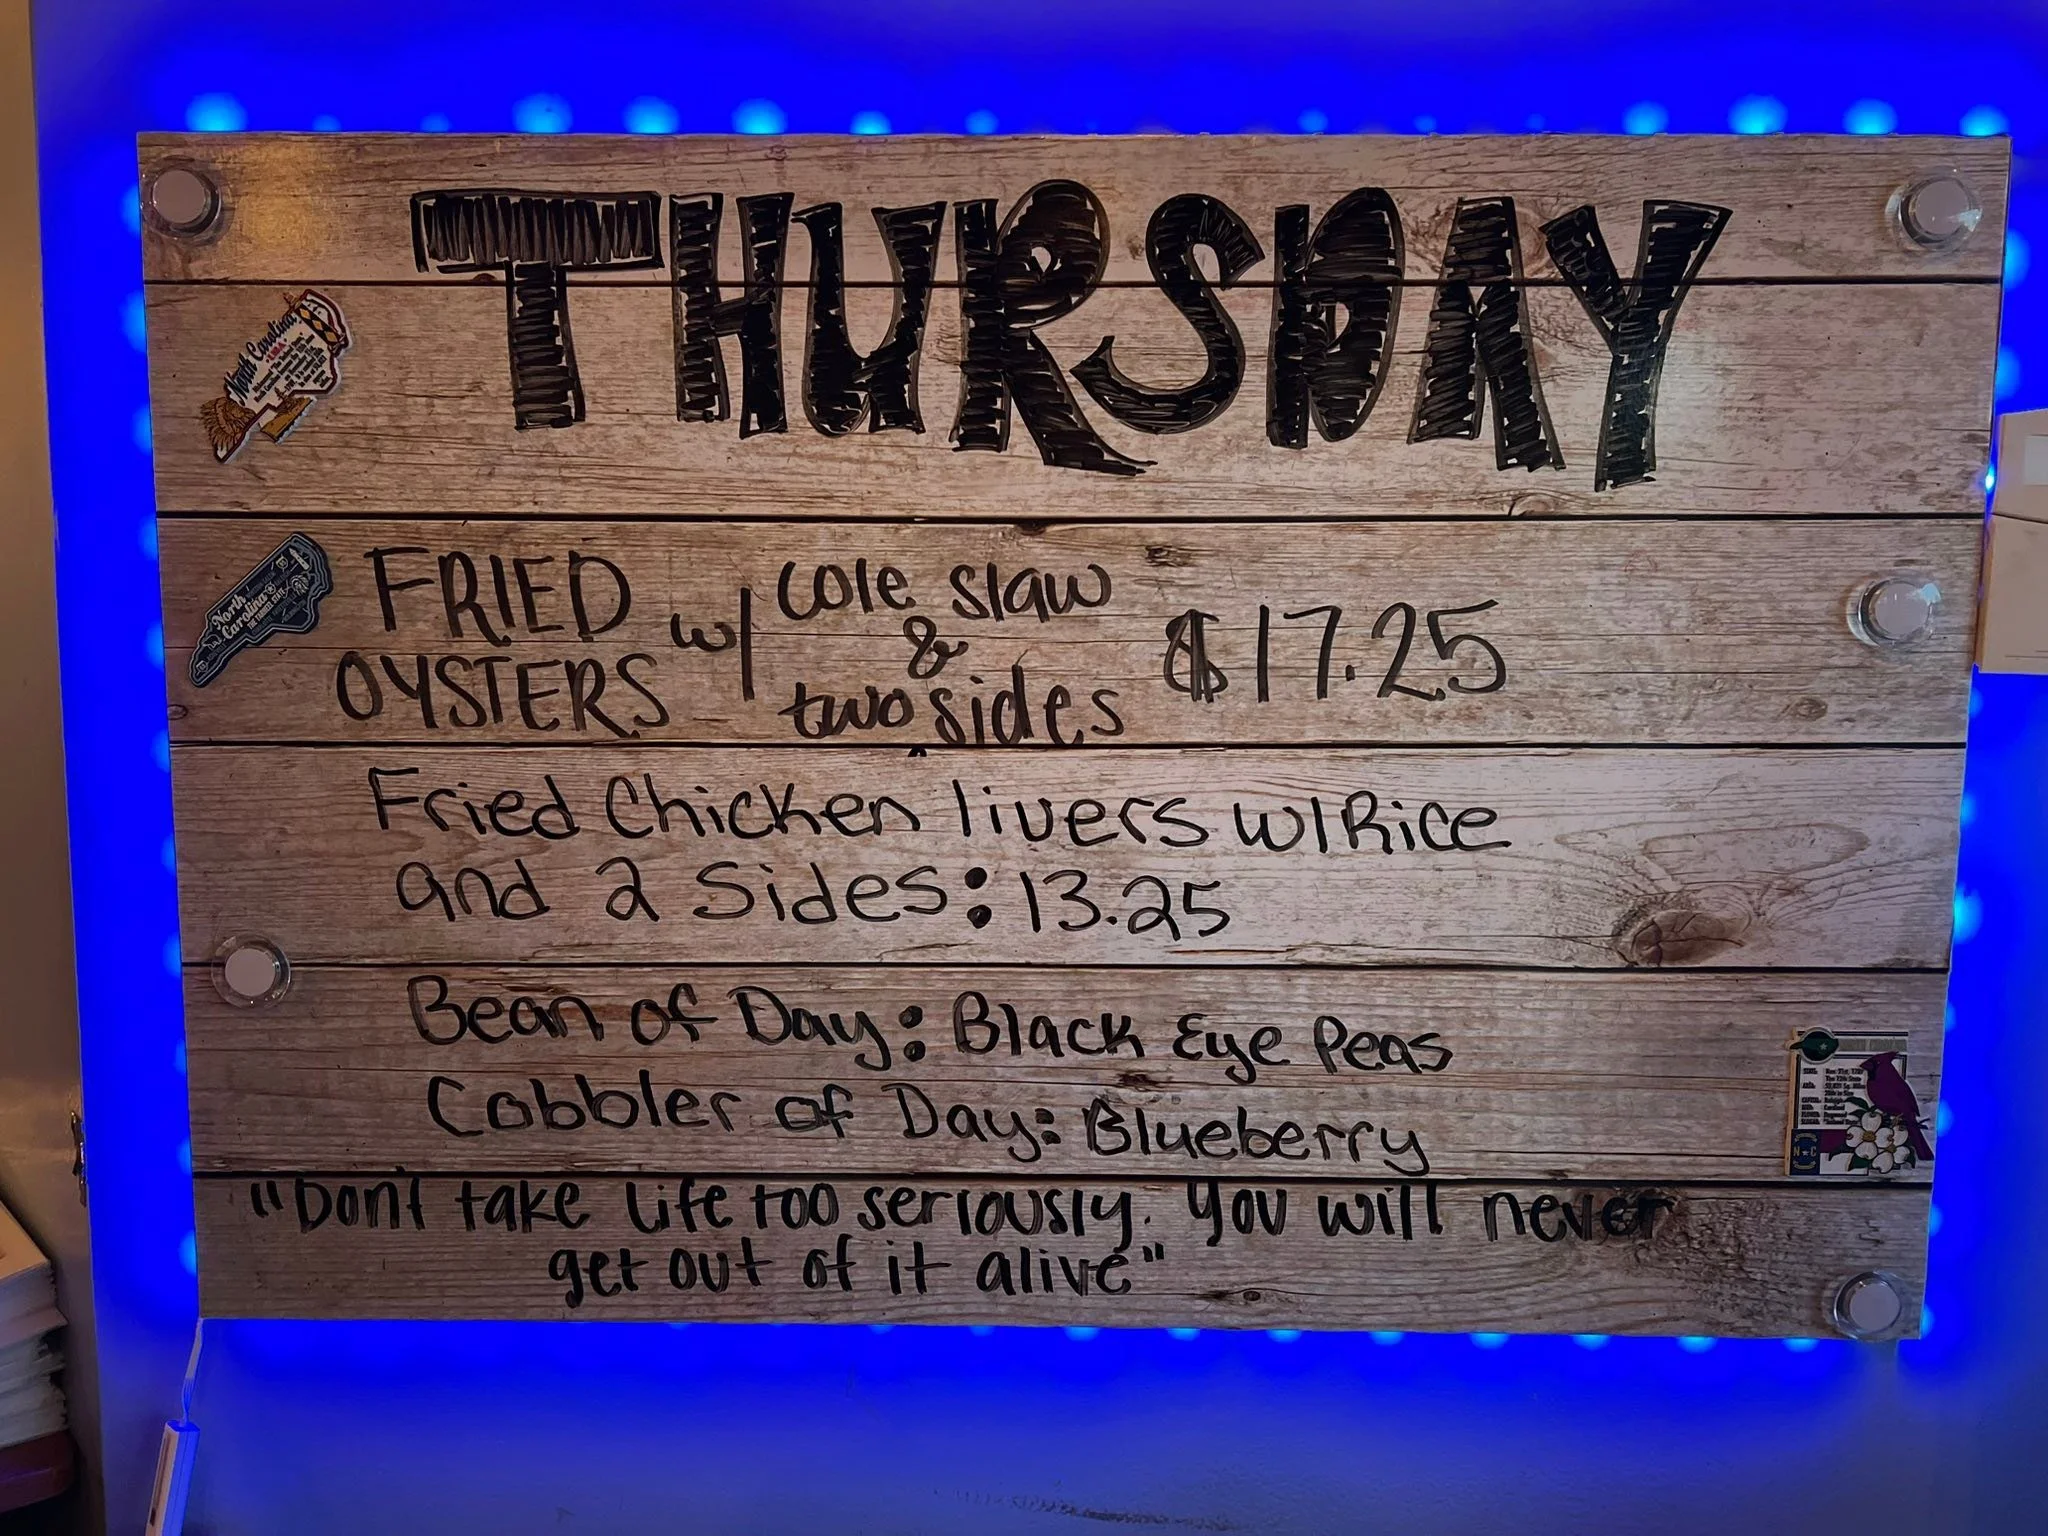 THURSDAY
North Carolina
USA
North
Carolina
THE TARHEEL STATE
FRIED OYSTERS w/ cole slaw & two sides $17.25
Fried Chicken livers w/Rice
and 2 Sides: 13.25
Bean of Day: Black Eye Peas
Cobbler of Day: Blueberry
N C
"Don't take life too seriously. You will never
get out of it alive"